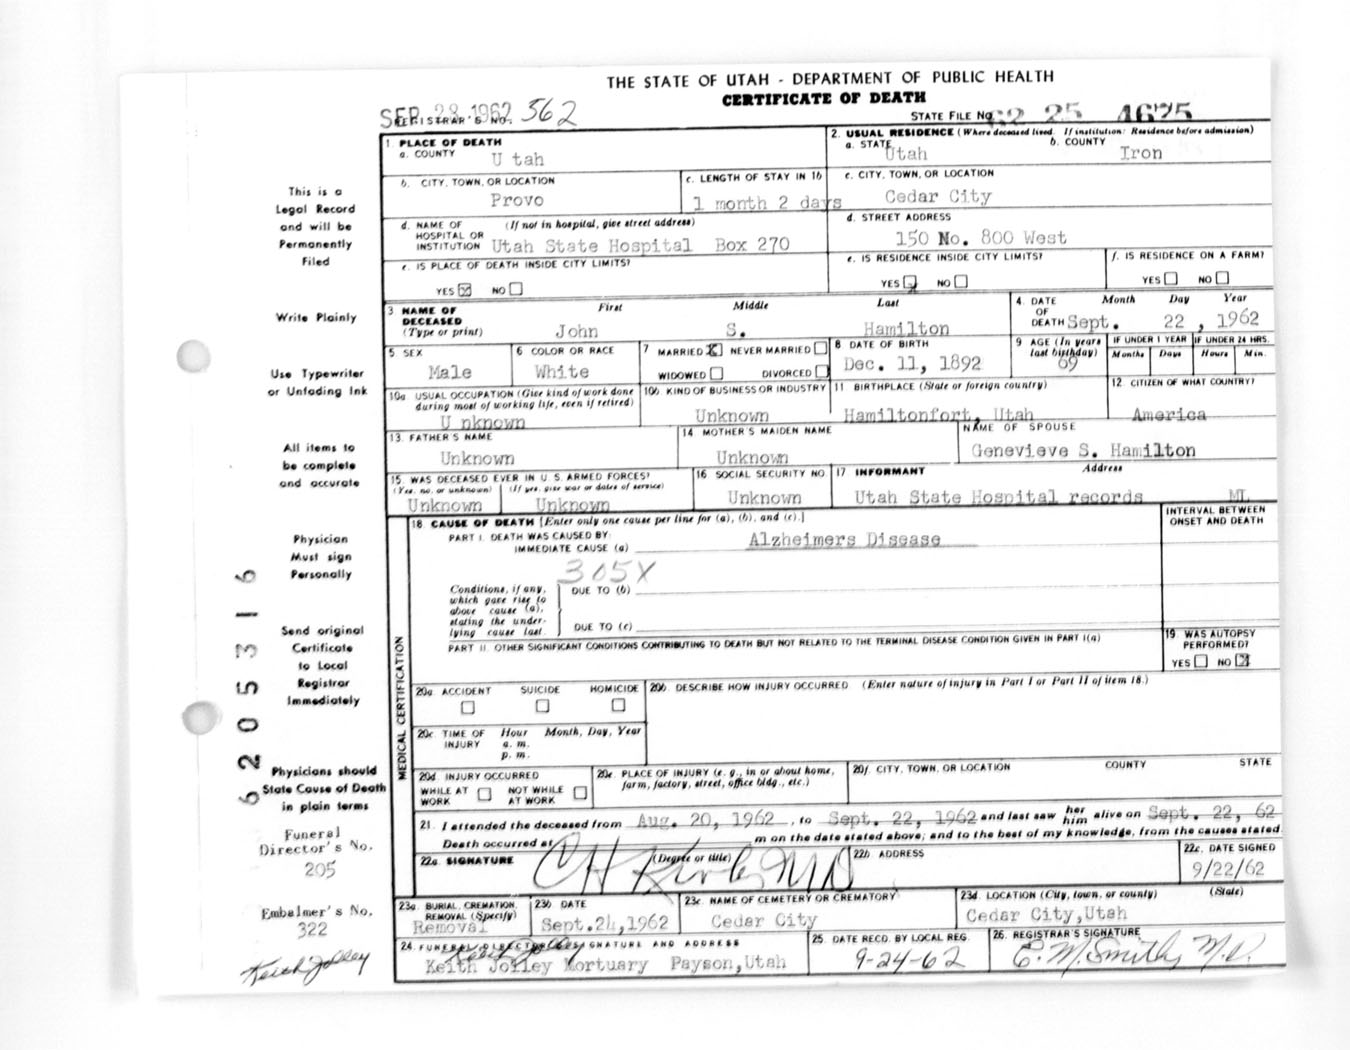 THE STATE OF UTAH - DEPARTMENT OF PUBLIC HEALTH
CERTIFICATE OF DEATH
SEP 28 1962 562
REGISTRAR'S NO.
STATE FILE NO. 62 25 4675
1. PLACE OF DEATH
a. COUNTY U tah
2. USUAL RESIDENCE (Where deceased lived. If institution: Residence before admission)
a. STATE Utah b. COUNTY Iron
b. CITY, TOWN, OR LOCATION Provo
c. LENGTH OF STAY IN 1b 1 month 2 days
c. CITY, TOWN, OR LOCATION Cedar City
d. NAME OF HOSPITAL OR INSTITUTION (If not in hospital, give street address) Utah State Hospital Box 270
d. STREET ADDRESS 150 No. 800 West
e. IS PLACE OF DEATH INSIDE CITY LIMITS? YES NO
e. IS RESIDENCE INSIDE CITY LIMITS? YES NO
f. IS RESIDENCE ON A FARM? YES NO
3 NAME OF DECEASED (Type or print) First Middle Last
John S. Hamilton
4. DATE OF DEATH Month Day Year
Sept. 22, 1962
5 SEX Male
6 COLOR OR RACE White
7 MARRIED NEVER MARRIED
WIDOWED DIVORCED
8 DATE OF BIRTH Dec. 11, 1892
9 AGE (In years last birthday) 69
IF UNDER 1 YEAR Months Days
IF UNDER 24 HRS. Hours Min.
10a USUAL OCCUPATION (Give kind of work done during most of working life, even if retired) U nknown
10b KIND OF BUSINESS OR INDUSTRY Unknown
11 BIRTHPLACE (State or foreign country) Hamiltonfort, Utah
12 CITIZEN OF WHAT COUNTRY? America
13. FATHER'S NAME Unknown
14 MOTHER'S MAIDEN NAME Unknown
NAME OF SPOUSE Genevieve S. Hamilton
15. WAS DECEASED EVER IN U. S. ARMED FORCES?
(Yes, no, or unknown) (If yes, give war or dates of service)
Unknown Unknown
16 SOCIAL SECURITY NO Unknown
17 INFORMANT Address
Utah State Hospital records ML
MEDICAL CERTIFICATION
18 CAUSE OF DEATH [Enter only one cause per line for (a), (b), and (c).]
INTERVAL BETWEEN ONSET AND DEATH
PART I. DEATH WAS CAUSED BY:
IMMEDIATE CAUSE (a) Alzheimers Disease
305X
Conditions, if any, which gave rise to above cause (a), stating the underlying cause last.
DUE TO (b)
DUE TO (c)
PART II. OTHER SIGNIFICANT CONDITIONS CONTRIBUTING TO DEATH BUT NOT RELATED TO THE TERMINAL DISEASE CONDITION GIVEN IN PART I(a)
19. WAS AUTOPSY PERFORMED?
YES NO
20a ACCIDENT SUICIDE HOMICIDE
20b. DESCRIBE HOW INJURY OCCURRED (Enter nature of injury in Part I or Part II of item 18.)
20c. TIME OF INJURY Hour Month, Day, Year
a. m.
p. m.
20d. INJURY OCCURRED
WHILE AT WORK NOT WHILE AT WORK
20e. PLACE OF INJURY (e. g., in or about home, farm, factory, street, office bldg., etc.)
20f. CITY, TOWN, OR LOCATION COUNTY STATE
21. I attended the deceased from Aug. 20, 1962, to Sept. 22, 1962 and last saw her him alive on Sept. 22, 62
Death occurred at m on the date stated above; and to the best of my knowledge, from the causes stated.
22a. SIGNATURE (Degree or title) MD
22b ADDRESS
22c. DATE SIGNED 9/22/62
23a. BURIAL, CREMATION, REMOVAL (Specify) Removal
23b DATE Sept.24,1962
23c. NAME OF CEMETERY OR CREMATORY Cedar City
23d. LOCATION (City, town, or county) (State)
Cedar City, Utah
24. FUNERAL DIRECTOR'S SIGNATURE AND ADDRESS
Keith Jolley
Keith Jolley Mortuary Payson, Utah
25. DATE RECD. BY LOCAL REG. 9-24-62
26. REGISTRAR'S SIGNATURE E. M. Smith, M.D.
This is a
Legal Record
and will be
Permanently
Filed
Write Plainly
Use Typewriter
or Unfading Ink
All items to
be complete
and accurate
Physician
Must sign
Personally
Send original
Certificate
to Local
Registrar
Immediately
Physicians should
State Cause of Death
in plain terms
Funeral
Director's No.
205
Embalmer's No.
322
Keith Jolley
6205316